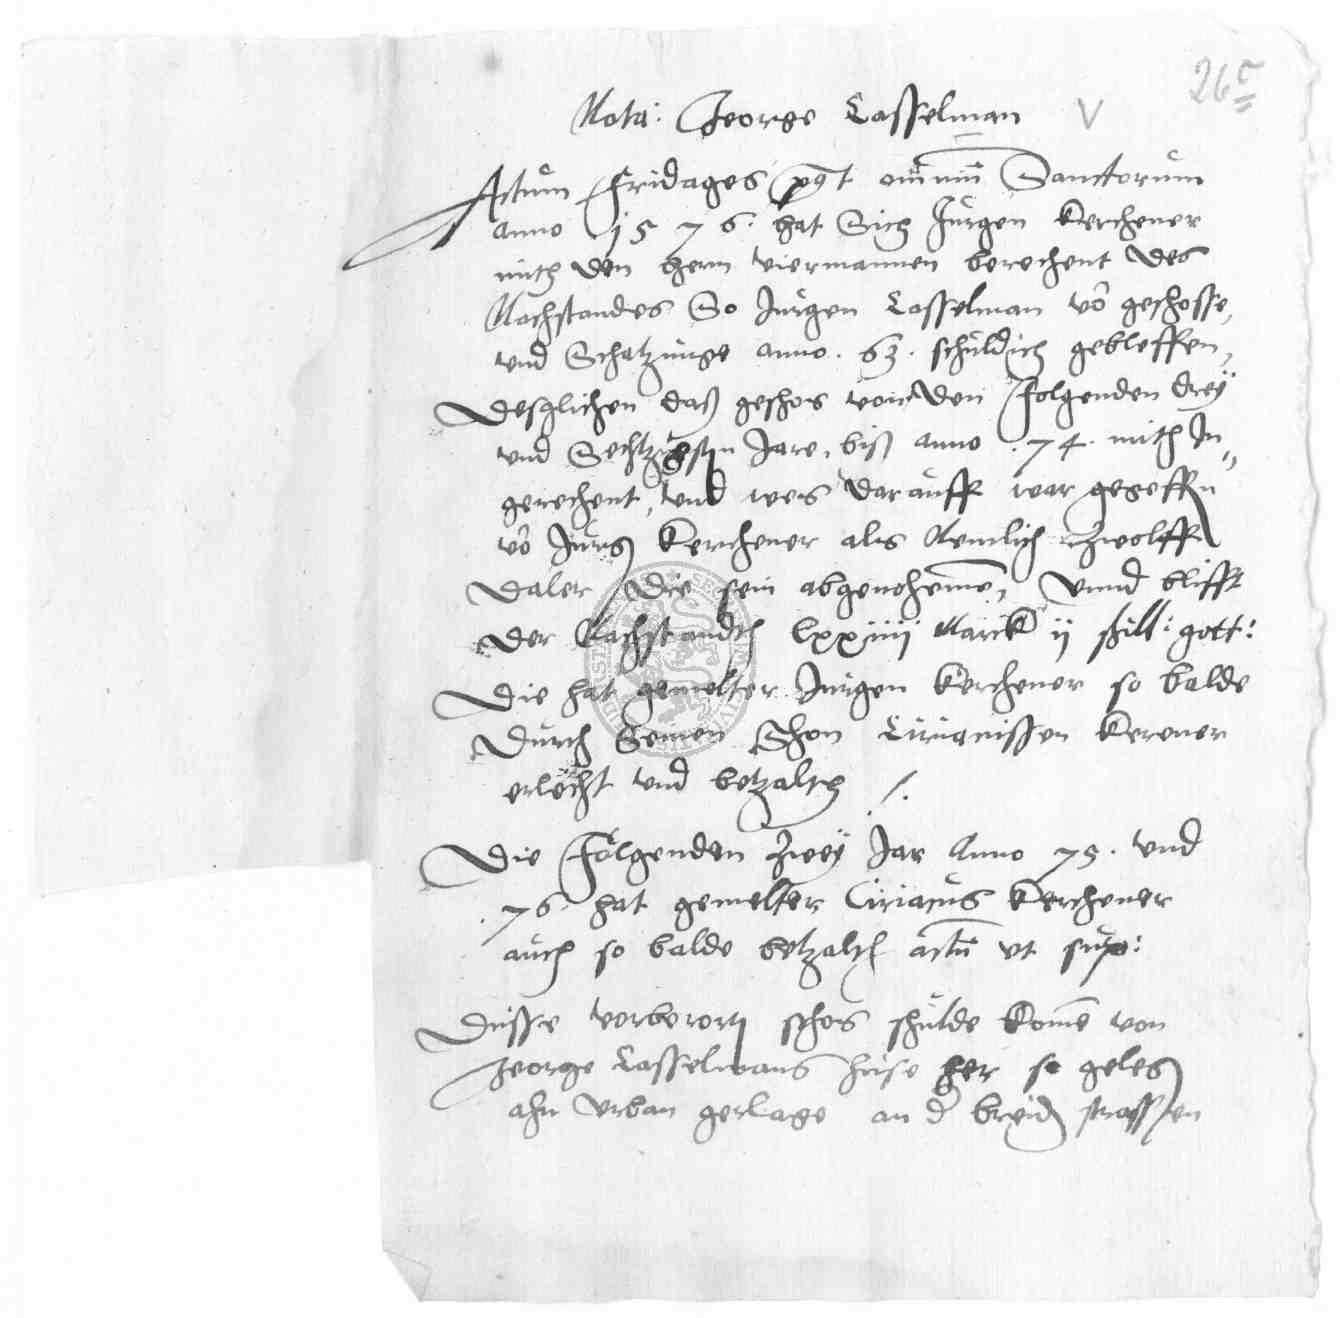 26c
V
Nota: George Casselman
Actum Fridages post omnium Sanctorum
anno 1576. hat Sich Jurgen Kerchener
mith den hern viermannen berechent des
Nachstandes So Jurgen Casselman võ geschosse,
und Schatzunge anno. 63. schuldich gebleffen,
desglichen daß geschos von den folgenden drey
und Sechtzigsten Jare, biß anno .74. mith In„
gerechent, und wes darauff war gegeffn
võ Jurg Kerchener als Nemlich zwolff
daler, die sein abgenohemẽ, Unnd blifft
der Nachstandth lxxiiii Marck ii schill: gott:
Die hat gemelter Jurgen Kerchener so balde
durch Seinen Shon Ciriacissen Kerener
erlecht und betzalth /.
Die folgenden zwey Jar Anno 75. und
.76. hat gemelter Ciriacus Kerchener
auch so balde betzalth actũ ut sup:
Dusse schos schulde komẽ von
George Casselmans huse her so geleg
ahn Urban gerlage an d breid strassen